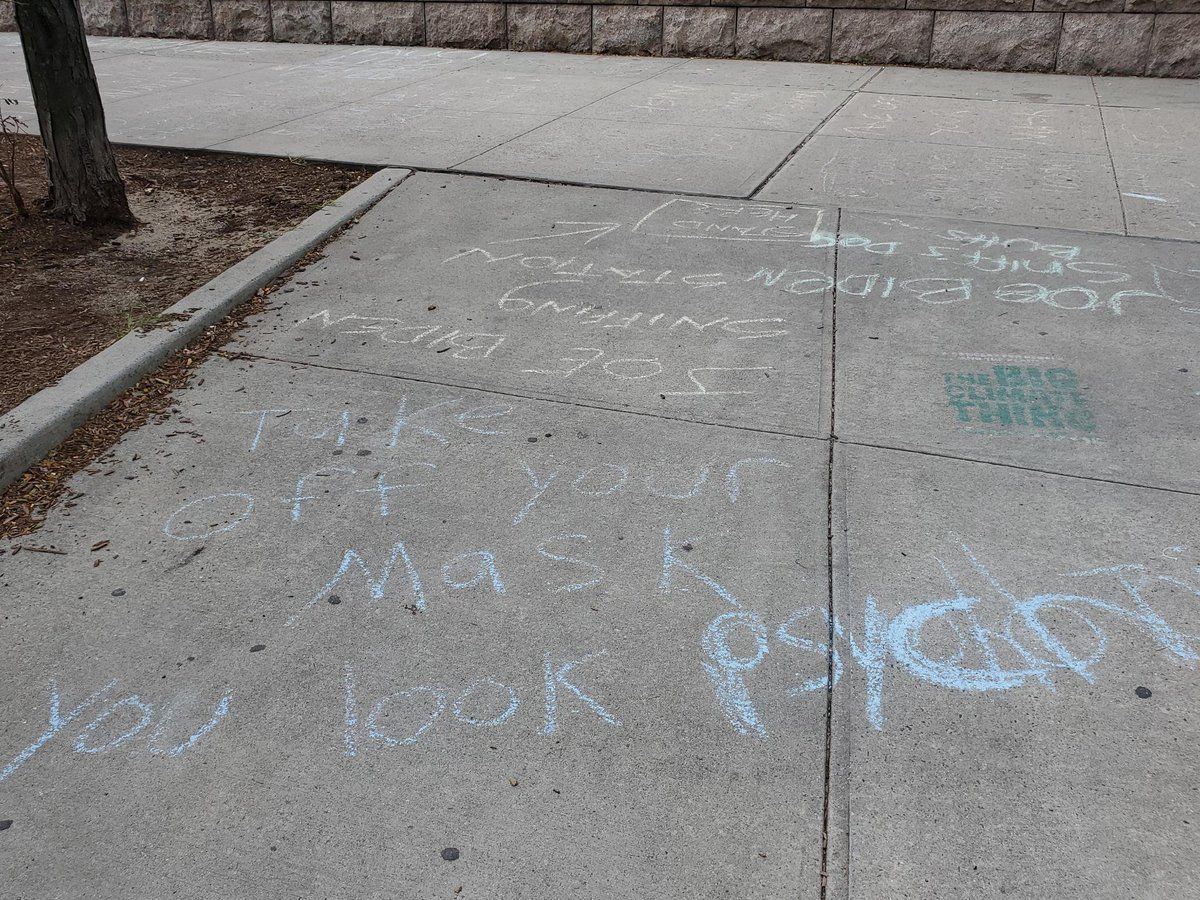 Take
off your
Mask
you look psychoti
THE BIG
CLIMATE
THING
JOE BIDEN
SNIFFING
STATION
STAND
HERE
JOE BIDEN
Sniffs Dog
Butts